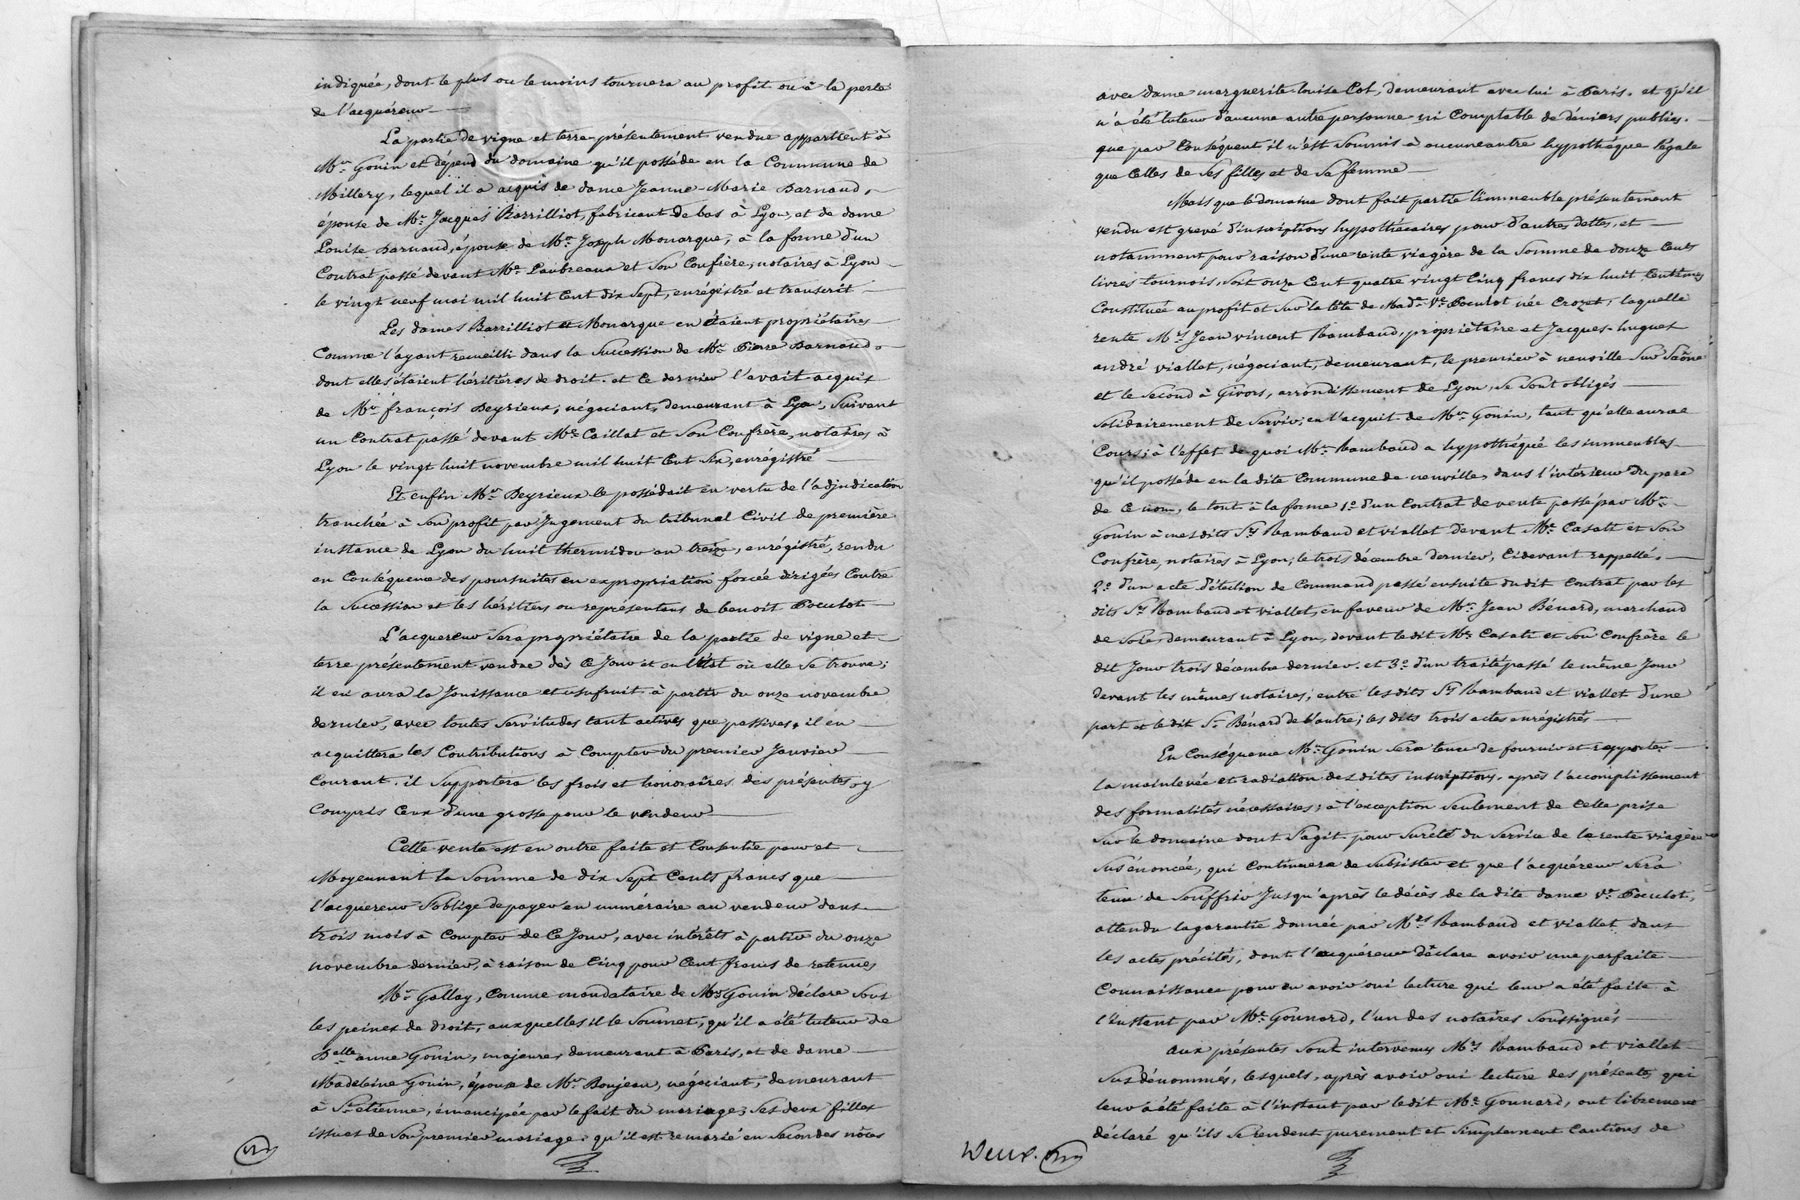 indiquée, dont le plus ou le moins tournera au profit ou à la perte
de l'acquéreur
La partie de vigne et terre présentement vendue appartient à
Mr. Gonin et dépend du domaine qu'il possède en la Commune de
Millery, lequel il a acquis de dame Jeanne-Marie Barnaud,
épouse de Mr. Jacques Barrilliot, fabricant de bas à Lyon, et de dame
Louise Barnaud, épouse de Mr. Joseph Monarque, à la forme d'un
Contrat passé devant Me. Laubreaux et Son Confrère, notaires à Lyon
le vingt neuf mai mil huit Cent dix sept, enrégistré et transcrit
Les dames Barrilliot et Monarque en étaient propriétaires
Comme l'ayant recueilli dans la Succession de Mr. Pierre Barnaud
dont elles étaient héritières de droit. et Ce dernier l'avait acquis
de Mr. françois Deyrieux, négociant, demeurant à Lyon, Suivant
un Contrat passé devant Me. Caillat et Son Confrère, notaires à
Lyon le vingt huit novembre mil huit Cent Six, enrégistré
Et enfin Mr. Deyrieux le possédait en vertu de l'adjudication
tranchée à Son profit par Jugement du tribunal Civil de première
instance de Lyon du huit thermidor an treize, enrégistré, rendu
en Conséquence des poursuites en expropriation forcée dirigées Contre
la Succession et les héritiers ou représentans de benoit Poculot
L'acquereur Sera propriétaire de la partie de vigne et
terre présentement vendue dès Ce Jour et en l'état où elle Se trouve;
il en aura la Jouissance et usufruit à partir du onze novembre
dernier, avec toutes Servitudes tant actives que passives, il en
acquittera les Contributions à Compter du premier Janvier
Courant. il Supportera les frais et honoraires des présentes, y
Compris Ceux d'une grosse pour le vendeur
Cette vente est en outre faite et Consentie pour et
Moyennant la Somme de dix Sept Cents francs que
l'acquereur S'oblige de payer en numéraire au vendeur dans
trois mois à Compter de Ce Jour, avec intérêts à partir du onze
novembre dernier, à raison de Cinq pour Cent francs de retenues
Mr. Gallay, Comme mandataire de Mr. Gonin déclare Sous
les peines de droit, auxquelles il le Soumet, qu'il a été tuteur de
Delle anne Gonin, majeure, demeurant à Paris, et de dame
Madeleine Gonin, épouse de Mr. Bonjean, négociant, demeurant
à St. etienne, émancipée par le fait du mariage; Ses deux filles
issues de Son premier mariage; qu'il est remarié en Secondes nôces
avec dame marguerite-louise Cot, demeurant avec lui à Paris. et qu'il
n'a été tuteur d'aucune autre personne ni Comptable de deniers publics.
que par Conséquent il n'est Soumis à aucune autre hypothèque légale
que Celles de Ses filles et de Sa femme
Mais que le domaine dont fait partie l'immeuble présentement
vendu est grevé d'inscriptions hypothécaires pour d'autres dettes, et
notamment pour raison d'une rente viagère de la Somme de douze Cents
livres tournois, Soit onze Cent quatre vingt Cinq francs dix huit Centimes
Constituée au profit et Sur la tête de Made. Ve. Poculot née Crozet, laquelle
rente Mrs. Jean vincent Rambaud, propriétaire et Jacques-hugues
andré viallet, négociant, demeurant, le premier à neuville Sur Saône
et le Second à Givors, arrondissement de Lyon, Se Sont obligés
Solidairement de Servir, en l'acquit de Mr. Gonin, tant qu'elle aurae
Cours; à l'effet de quoi Mr. Rambaud a hypothéqué les immeubles
qu'il possède en la dite Commune de neuville, dans l'intérieur du parc
de Ce nom, le tout à la forme 1o. d'un Contrat de vente passé par Mr.
Gonin à mes dits Srs. Rambaud et viallet devant Me. Casati et Son
Confrère, notaires à Lyon, le trois décembre dernier, Cidevant rappellé.
2o. d'un acte d'élection de Command passé ensuite du dit Contrat par les
dits Srs. Rambaud et viallet, en faveur de Mr. Jean Bénard, marchand
de Soie, demeurant à Lyon, devant le dit Me. Casati et Son Confrère le
dit Jour trois décembre dernier. et 3o. d'un traité passé le même Jour
devant les mêmes notaires, entre les dits Srs. Rambaud et viallet d'une
part et le dit Sr. Bénard de l'autre; les dits trois actes enrégistrés
En Conséquence Mr. Gonin Sera tenu de fournir et rapporter
la mainlevée et radiation des dites inscriptions, après l'accomplissement
des formalités nécessaires; à l'exception Seulement de Celle prise
Sur le domaine dont S'agit pour Sureté du Service de la rente viagère
Sus énoncée, qui Continuera de Subsister et que l'acquéreur Sera
tenu de Souffrir Jusqu'après le décès de la dite dame Ve. Poculot,
attendu la garantie donnée par Mrs. Rambaud et viallet dans
les actes précités, dont l'acquéreur déclare avoir une parfaite
Connaissance pour en avoir oui lecture qui leur a été faite à
l'instant par Me. Gounard, l'un des notaires Soussignés
Aux présentes Sont intervenus Mrs. Rambaud et viallet
Sus dénommés, lesquels, après avoir oui lecture des présentes qui
leur a été faite à l'instant par le dit Me. Gounard, ont librement
déclaré qu'ils Se rendent purement et Simplement Cautions de
Deux.